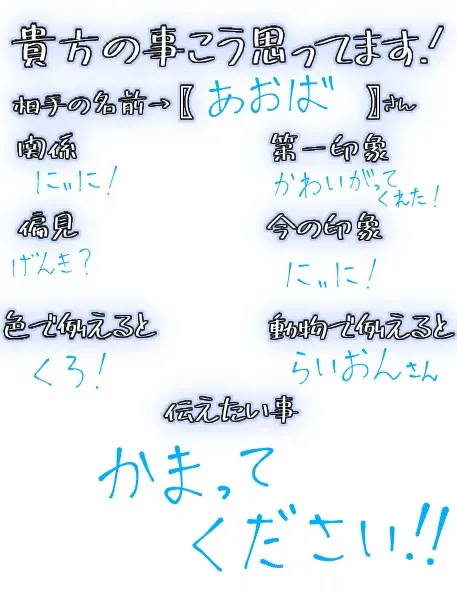 貴方の事こう思ってます!
相手の名前→〖あおば〗さん
関係
にぃに!
第一印象
かわいがって
くれた!
偏見
げんき?
今の印象
にぃに!
色で例えると
くろ!
動物で例えると
らいおんさん
伝えたい事
かまって
ください!!